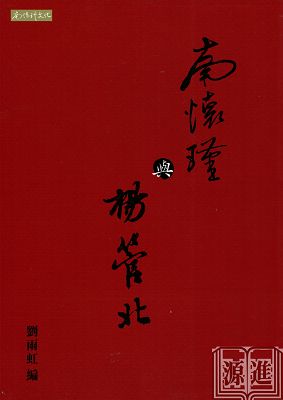 南懷瑾文化
南懷瑾
與
楊管北
劉雨虹 編
進源